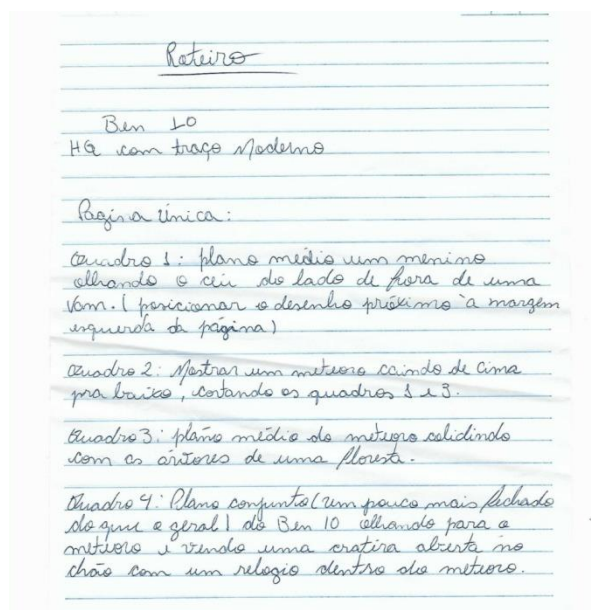 Roteiro
Ben 10
HQ com traço Moderno
Pagina Única:
Quadro 1: plano médio um menino
olhando o céu do lado de fora de uma
Vam. (posicionar o desenho próximo à margem
esquerda da página)
Quadro 2: Mostrar um meteoro caindo de cima
pra baixo, cortando os quadros 1 e 3.
Quadro 3: plano médio do meteoro colidindo
com as árvores de uma floresta.
Quadro 4: Plano conjunto (um pouco mais fechado
do que o geral) do Ben 10 olhando para o
meteoro e vendo uma cratera aberta no
chão com um relogio dentro do meteoro.